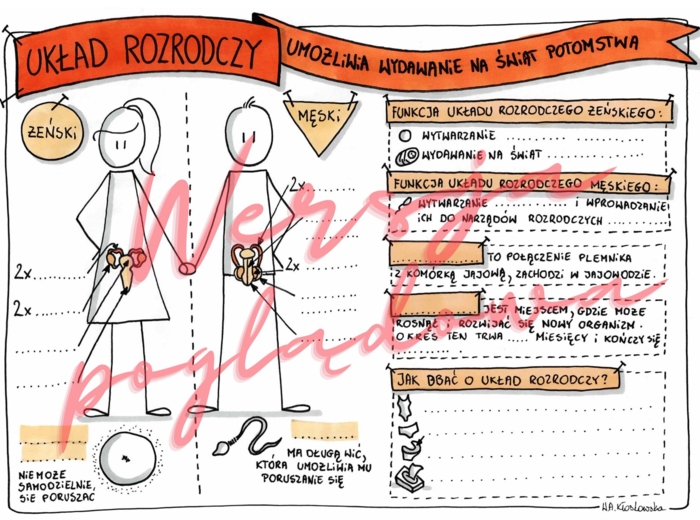 UKŁAD ROZRODCZY
UMOŻLIWIA WYDAWANIE NA ŚWIAT POTOMSTWA
ŻEŃSKI
MĘSKI
2x ..........
2x ..........
2x ..........
2x ..........
NIE MOŻE
SAMODZIELNIE,
SIĘ PORUSZAĆ
MA DŁUGĄ WIĆ,
KTÓRA UMOŻLIWIA MU
PORUSZANIE SIĘ
FUNKCJA UKŁADU ROZRODCZEGO ŻEŃSKIEGO:
WYTWARZANIE ..........
WYDAWANIE NA ŚWIAT ..........
FUNKCJA UKŁADU ROZRODCZEGO MĘSKIEGO:
WYTWARZANIE .......... I WPROWADZANIE
ICH DO NARZĄDÓW ROZRODCZYCH ..........
.......... TO POŁĄCZENIE PLEMNIKA
Z KOMÓRKĄ JAJOWĄ, ZACHODZI W JAJOWODZIE.
.......... JEST MIEJSCEM, GDZIE MOŻE
ROSNĄĆ I ROZWIJAĆ SIĘ NOWY ORGANIZM.
OKRES TEN TRWA .... MIESIĘCY I KOŃCZY SIĘ
..........
JAK DBAĆ O UKŁAD ROZRODCZY?
Wersja
poglądowa
W.A. Kłosłowska